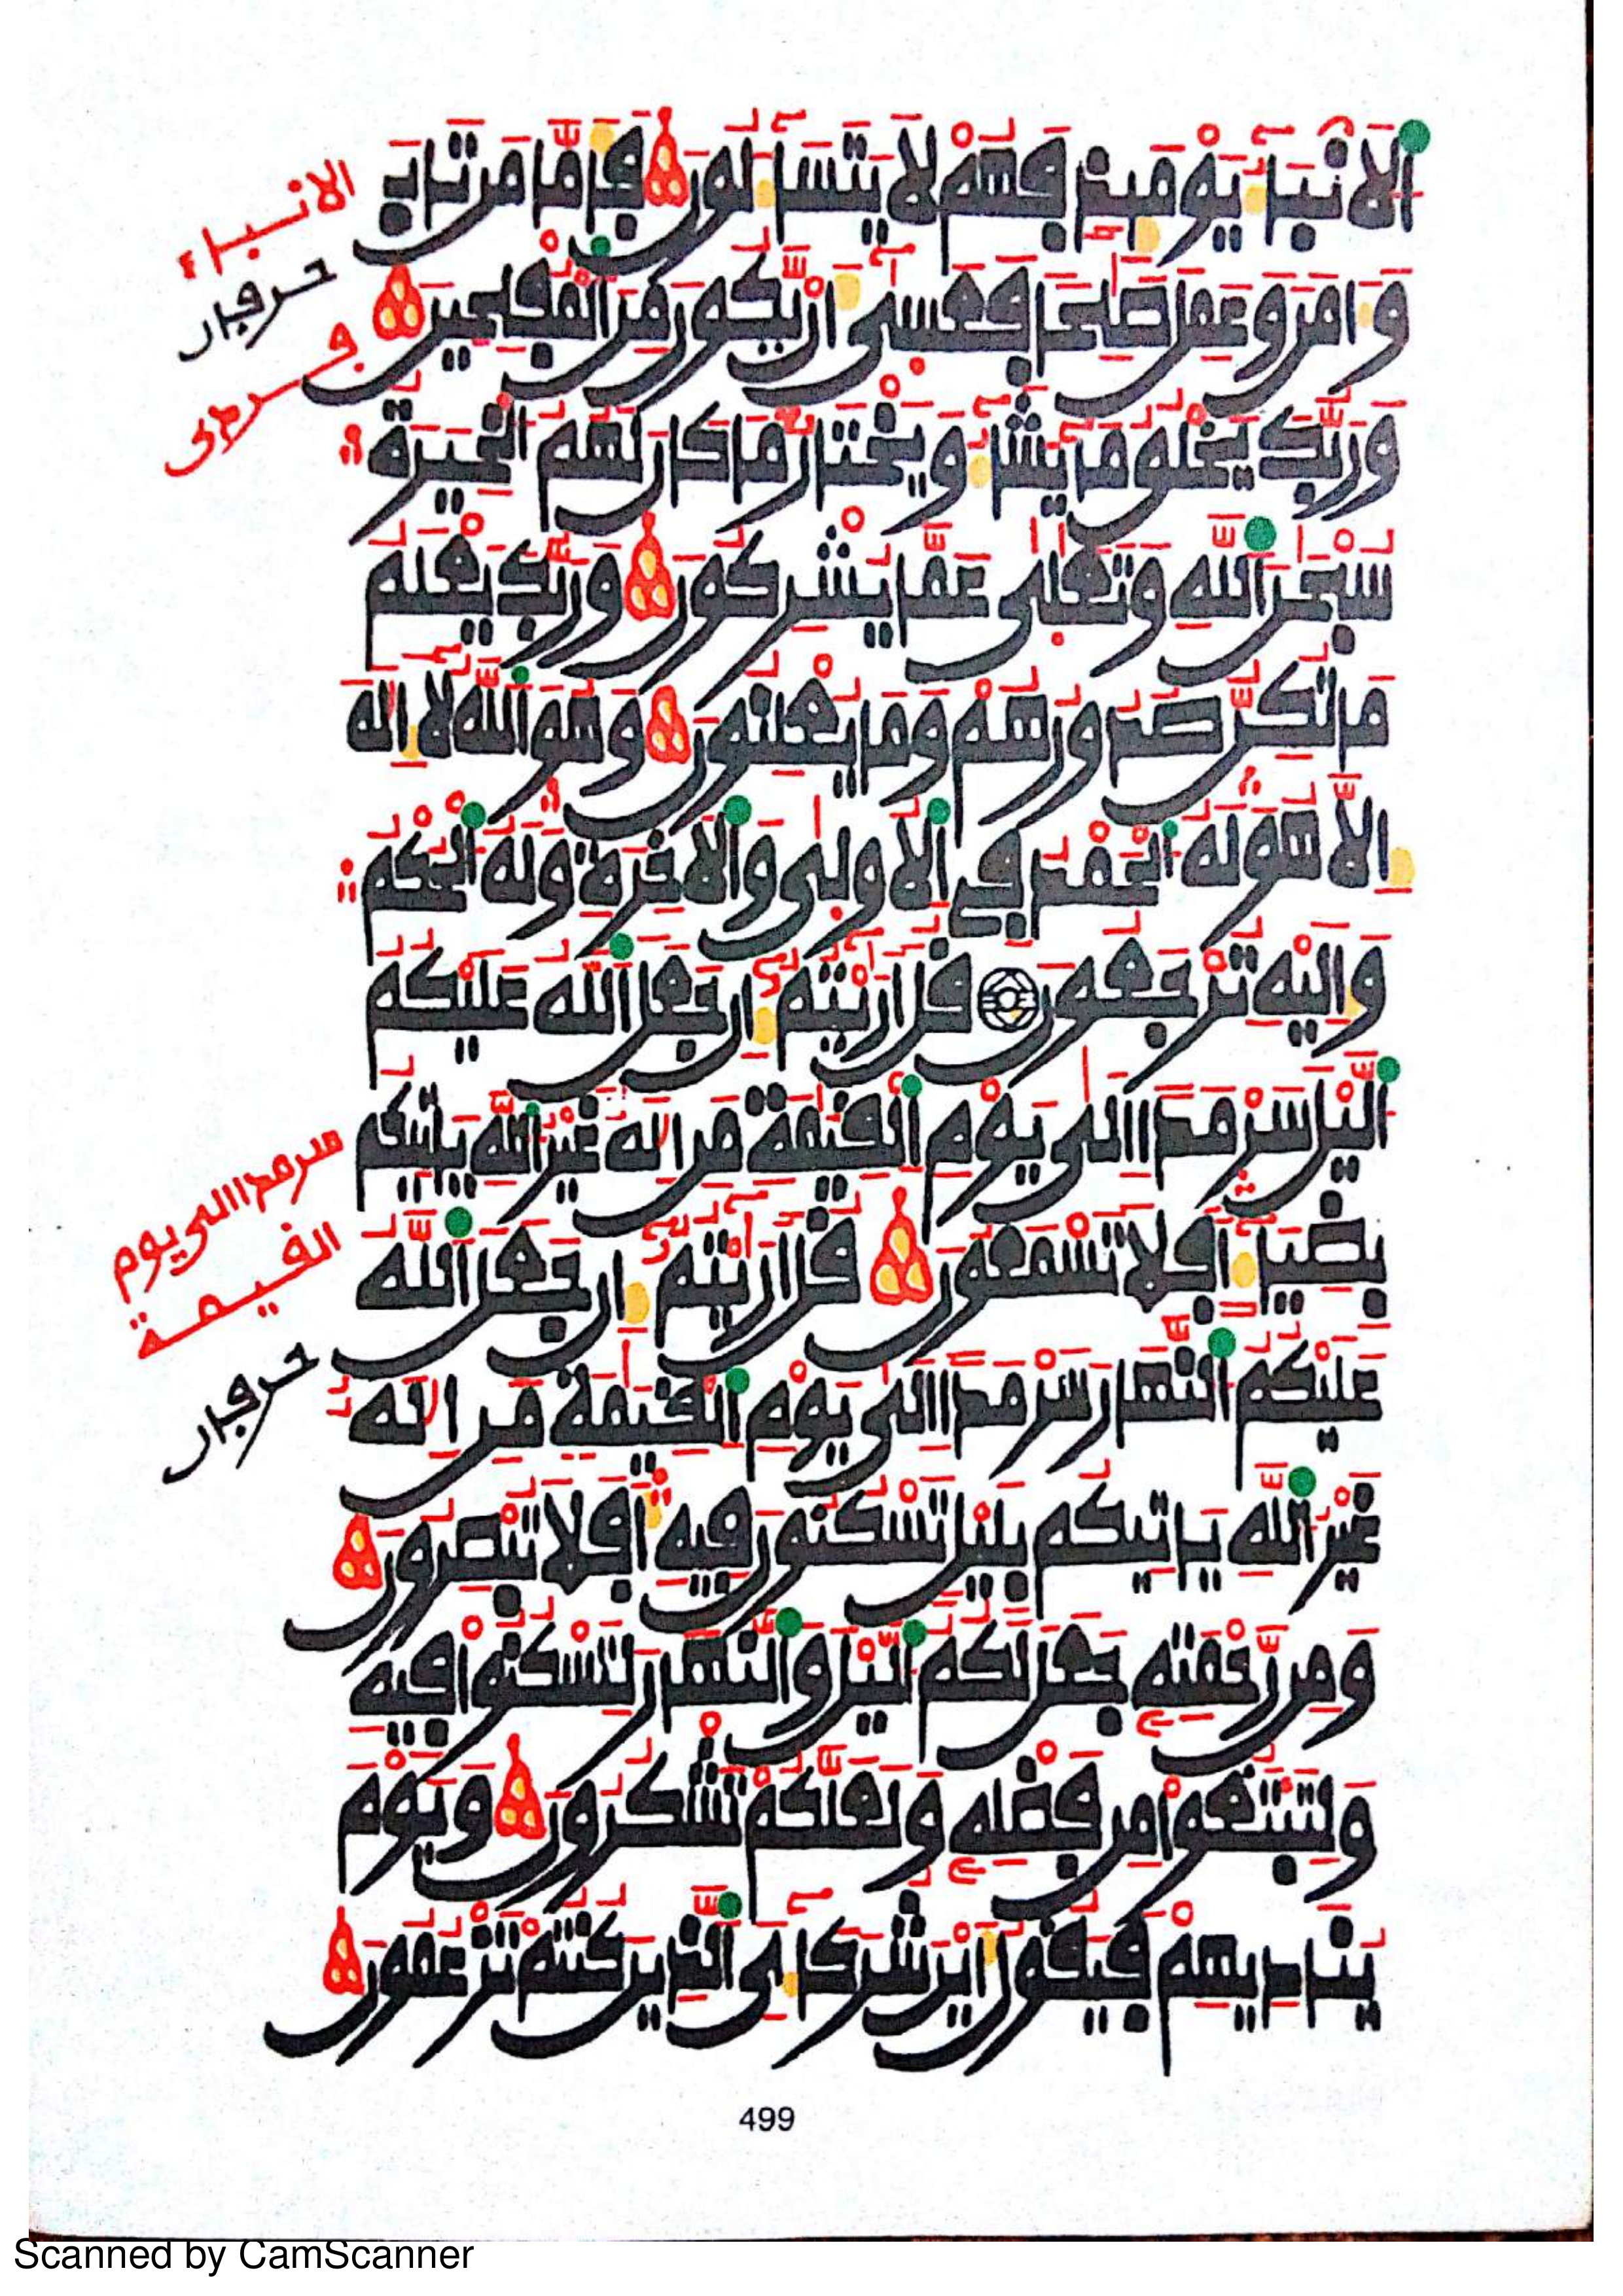 الانبا يومىذ فهم لا يتسالون فاما من تاب
وامن وعمل صلحا فعسى ان يكون من المفلحين
وربك يخلق ما يشا ويختار ما كان لهم الخيرة
سبحن الله وتعلى عما يشركون وربك يعلم
ما تكن صدورهم وما يعلنون وهو الله لا اله
الا هو له الحمد في الاولى والاخرة وله الحكم
واليه ترجعون قل اريتم ان جعل الله عليكم
اليل سرمدا الى يوم القيمة من اله غير الله ياتيكم
بضيا افلا تسمعون قل اريتم ان جعل الله
عليكم النهار سرمدا الى يوم القيمة من اله
غير الله ياتيكم بليل تسكنون فيه افلا تبصرون
ومن رحمته جعل لكم اليل والنهار لتسكنوا فيه
ولتبتغوا من فضله ولعلكم تشكرون ويوم
يناديهم فيقول اين شركاءى الذين كنتم تزعمون
الانباء
حرفان
سرمدا الى يوم
القيمة
حرفان
499
Scanned by CamScanner